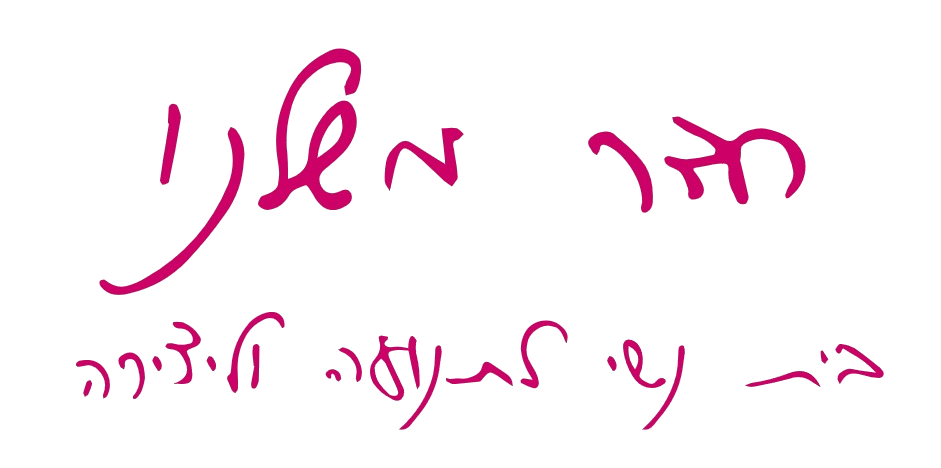 חדר משלנו
בית נשי לתנועה וליצירה